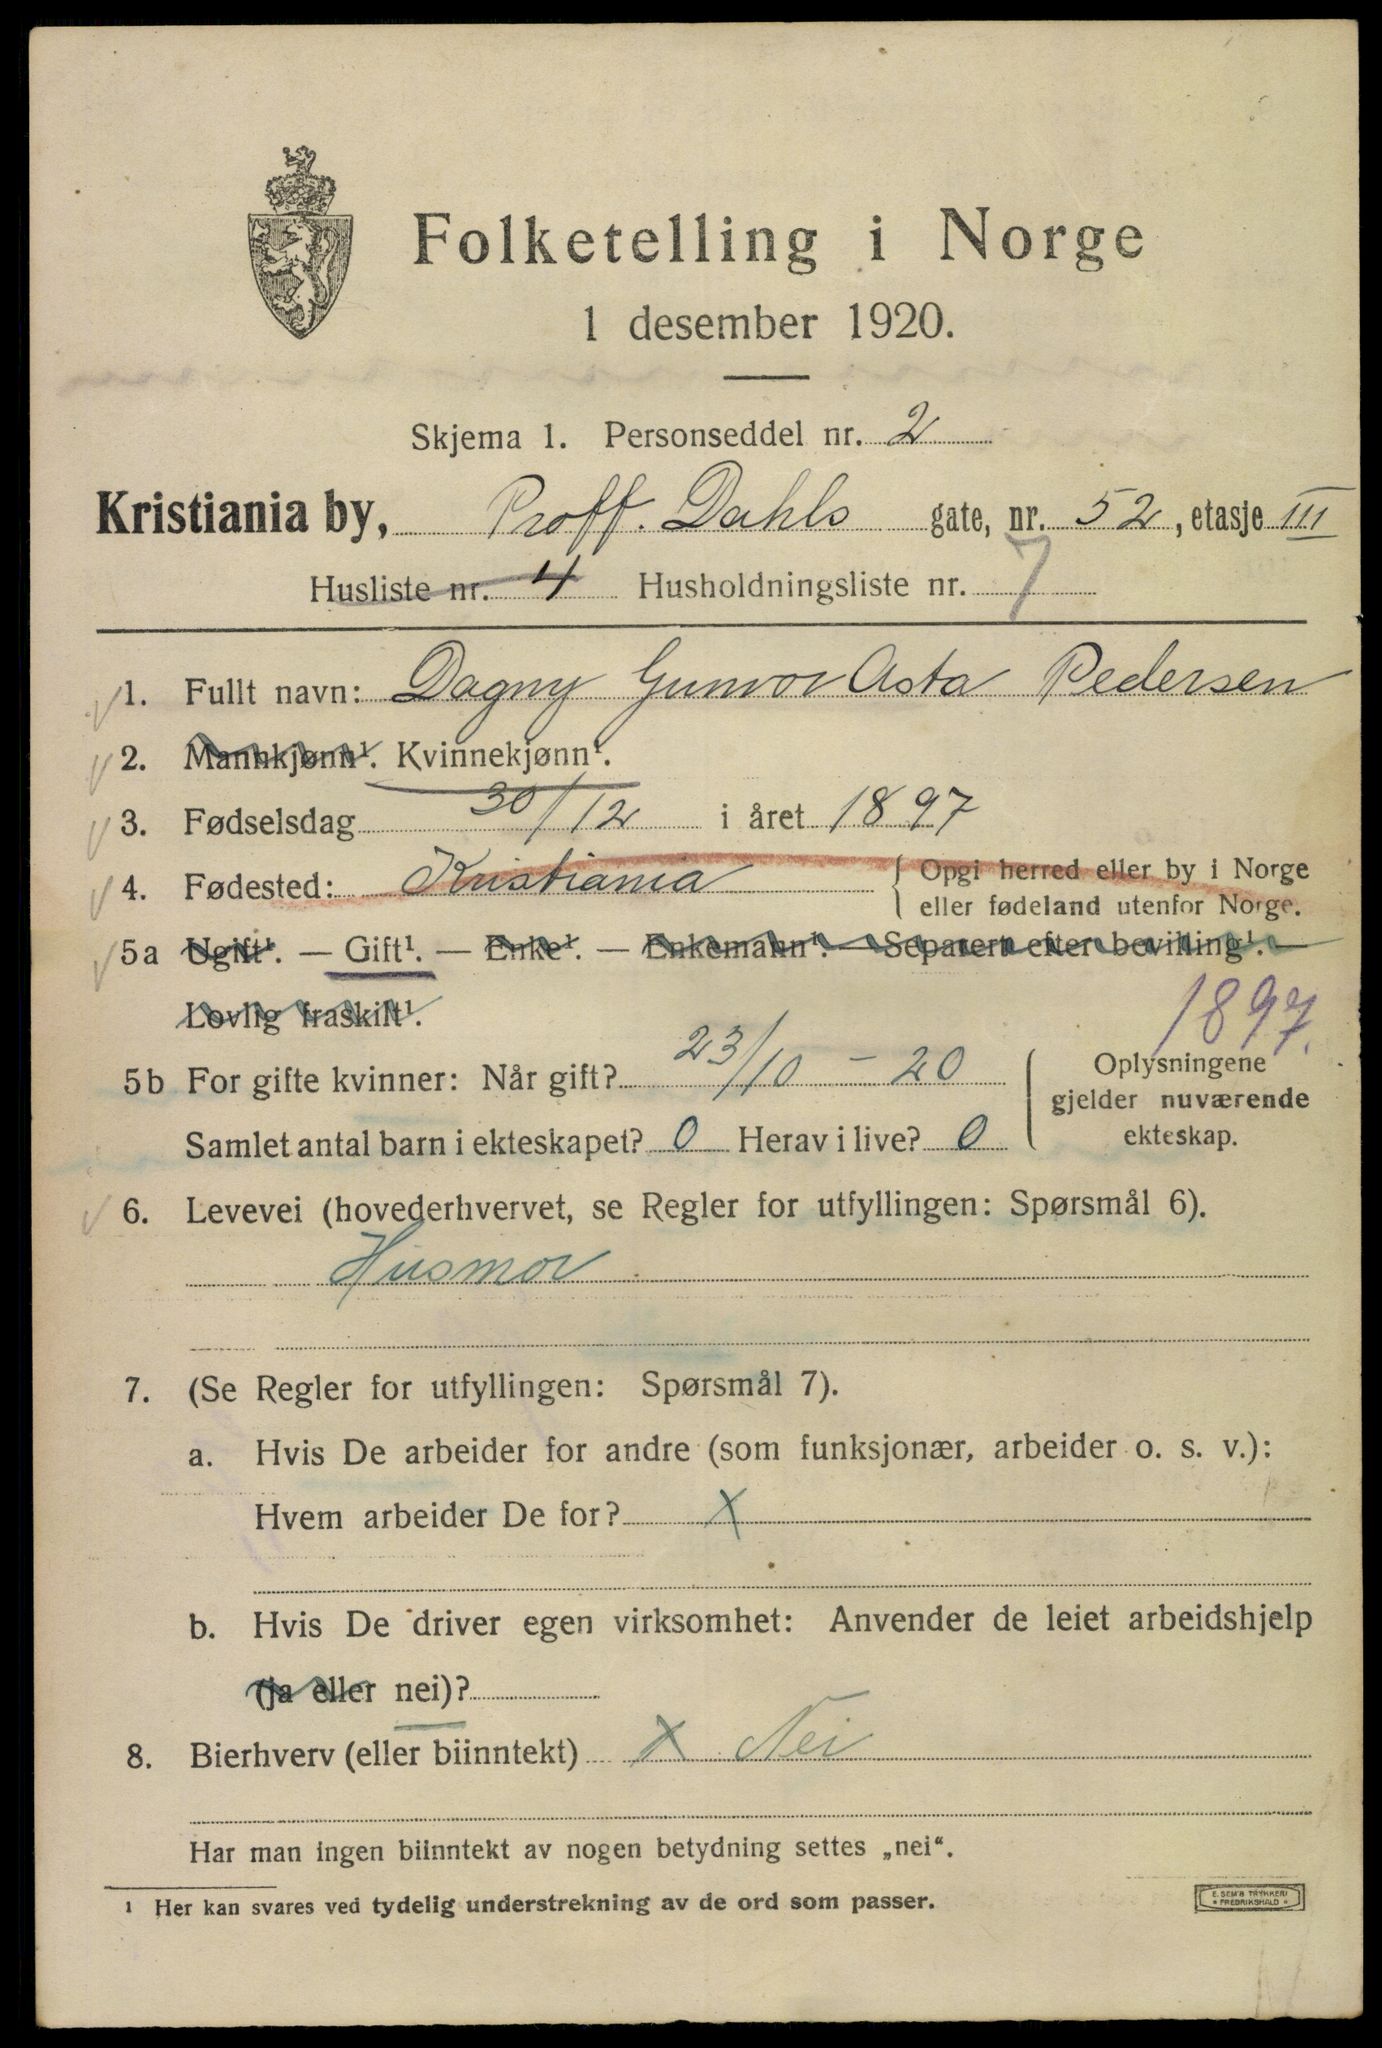 Folketelling i Norge
1 desember 1920.
Skjema 1. Personseddel nr. 2
Kristiania by, Proff. Dahls gate, nr. 52, etasje III
Husliste nr. 4 Husholdningsliste nr. 7
1. Fullt navn: Dagny Gunvor Asta Pedersen
2. Mannkjønn¹. Kvinnekjønn¹.
3. Fødselsdag 30/12 i året 1897
4. Fødested: Kristiania { Opgi herred eller by i Norge
eller fødeland utenfor Norge.
5a Ugift¹. — Gift¹. — Enke¹. — Enkemann¹. — Separert efter bevilling¹. —
Lovlig fraskilt¹.
1897.
5b For gifte kvinner: Når gift? 23/10 - 20
Samlet antal barn i ekteskapet? 0 Herav i live? 0
Oplysningene
gjelder nuværende
ekteskap.
6. Levevei (hovederhvervet, se Regler for utfyllingen: Spørsmål 6).
Husmor
7. (Se Regler for utfyllingen: Spørsmål 7).
a. Hvis De arbeider for andre (som funksjonær, arbeider o. s. v.):
Hvem arbeider De for? X
b. Hvis De driver egen virksomhet: Anvender de leiet arbeidshjelp
(ja eller nei)?
8. Bierhverv (eller biinntekt) X Nei
Har man ingen biinntekt av nogen betydning settes „nei“.
¹ Her kan svares ved tydelig understrekning av de ord som passer.
E. SEM'S TRYKKERI
* FREDRIKSHALD *